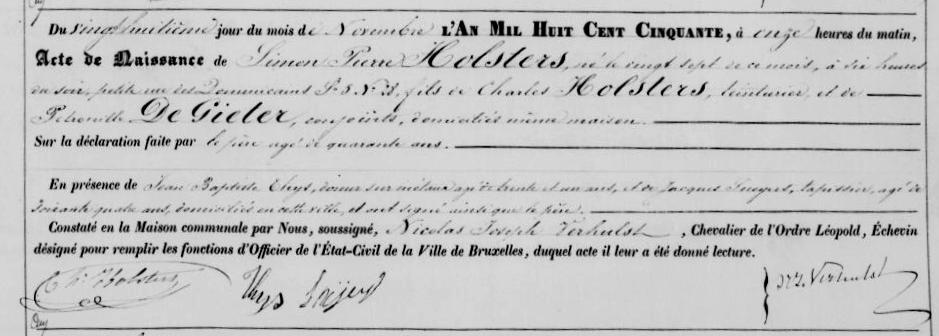 Du vingt huitième jour du mois de Novembre L'AN MIL HUIT CENT CINQUANTE, à onze heures du matin,
Acte de Naissance de Simon Pierre Holsters, né le vingt sept de ce mois, à dix heures
du soir, petite rue des Dominicains S.5 N° 28, fils de Charles Holsters, teinturier, et de
Petronille De Gieter, conjoints, domiciliés même maison.
Sur la déclaration faite par le père agé de quarante ans.
En présence de Jean Baptiste Thys, doreur sur métaux agé de trente et un ans, et de Jacques tapissier, agé de
soixante quatre ans, domiciliés en cette ville, et ont signé ainsi que le père.
Constaté en la Maison communale par Nous, soussigné, Nicolas Joseph Verhulst, Chevalier de l'Ordre Léopold, Échevin
désigné pour remplir les fonctions d'Officier de l'État-Civil de la Ville de Bruxelles, duquel acte il leur a été donné lecture.
Ch. Holsters Thys N J Verhulst